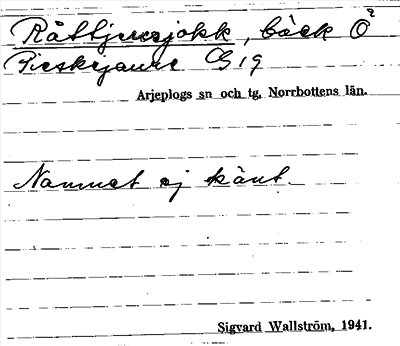 Råttjuresjokk, bäck Ö
Pieskejaure G 19
Arjeplogs sn och tg, Norrbottens län.
Namnet ej känt.
Sigvard Wallström, 1941.